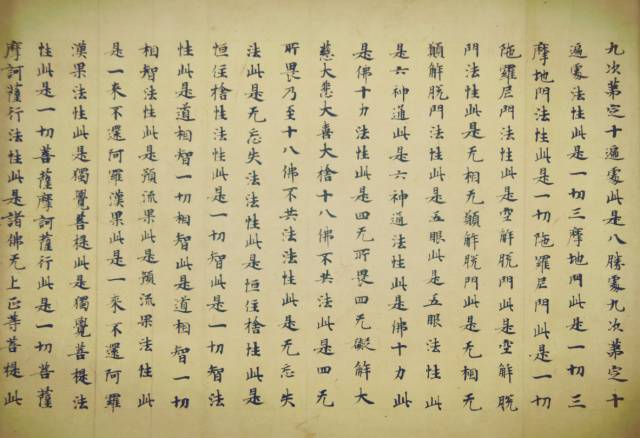 九次第定十遍處此是八勝處九次第定十
遍處法性此是一切三摩地門此是一切三
摩地門法性此是一切陁羅尼門此是一切
陁羅尼門法性此是空解脫門此是空解脫
門法性此是无相无願解脫門此是无相无
願解脫門法性此是五眼此是五眼法性此
是六神通此是六神通法性此是佛十力此
是佛十力法性此是四无所畏四无礙解大
慈大悲大喜大捨十八佛不共法此是四无
所畏乃至十八佛不共法法性此是无忘失
法此是无忘失法法性此是恒住捨性此是
恒住捨性法性此是一切智此是一切智法
性此是道相智一切相智此是道相智一切
相智法性此是預流果此是預流果法性此
是一來不還阿羅漢果此是一來不還阿羅
漢果法性此是獨覺菩提此是獨覺菩提法
性此是一切菩薩摩訶薩行此是一切菩薩
摩訶薩行法性此是諸佛无上正等菩提此